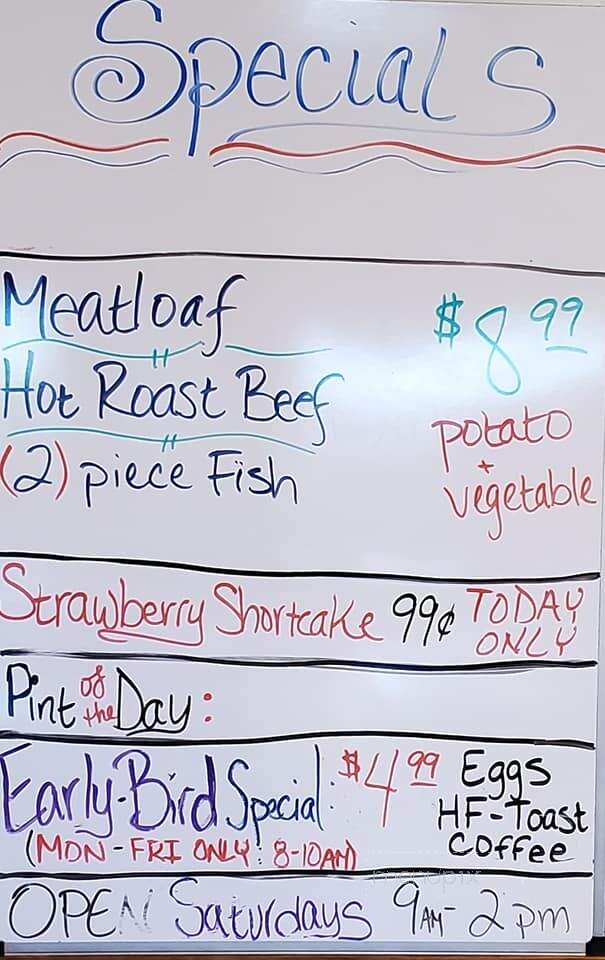 Specials
Meatloaf
$8.99
Hot Roast Beef
potato
+
vegetable
(2) piece Fish
Strawberry Shortcake 99¢ TODAY
ONLY
Pint of the Day:
Early-Bird Special: $4.99 Eggs
HF-Toast
Coffee
(MON-FRI ONLY: 8-10AM)
OPEN Saturdays 9AM-2pm